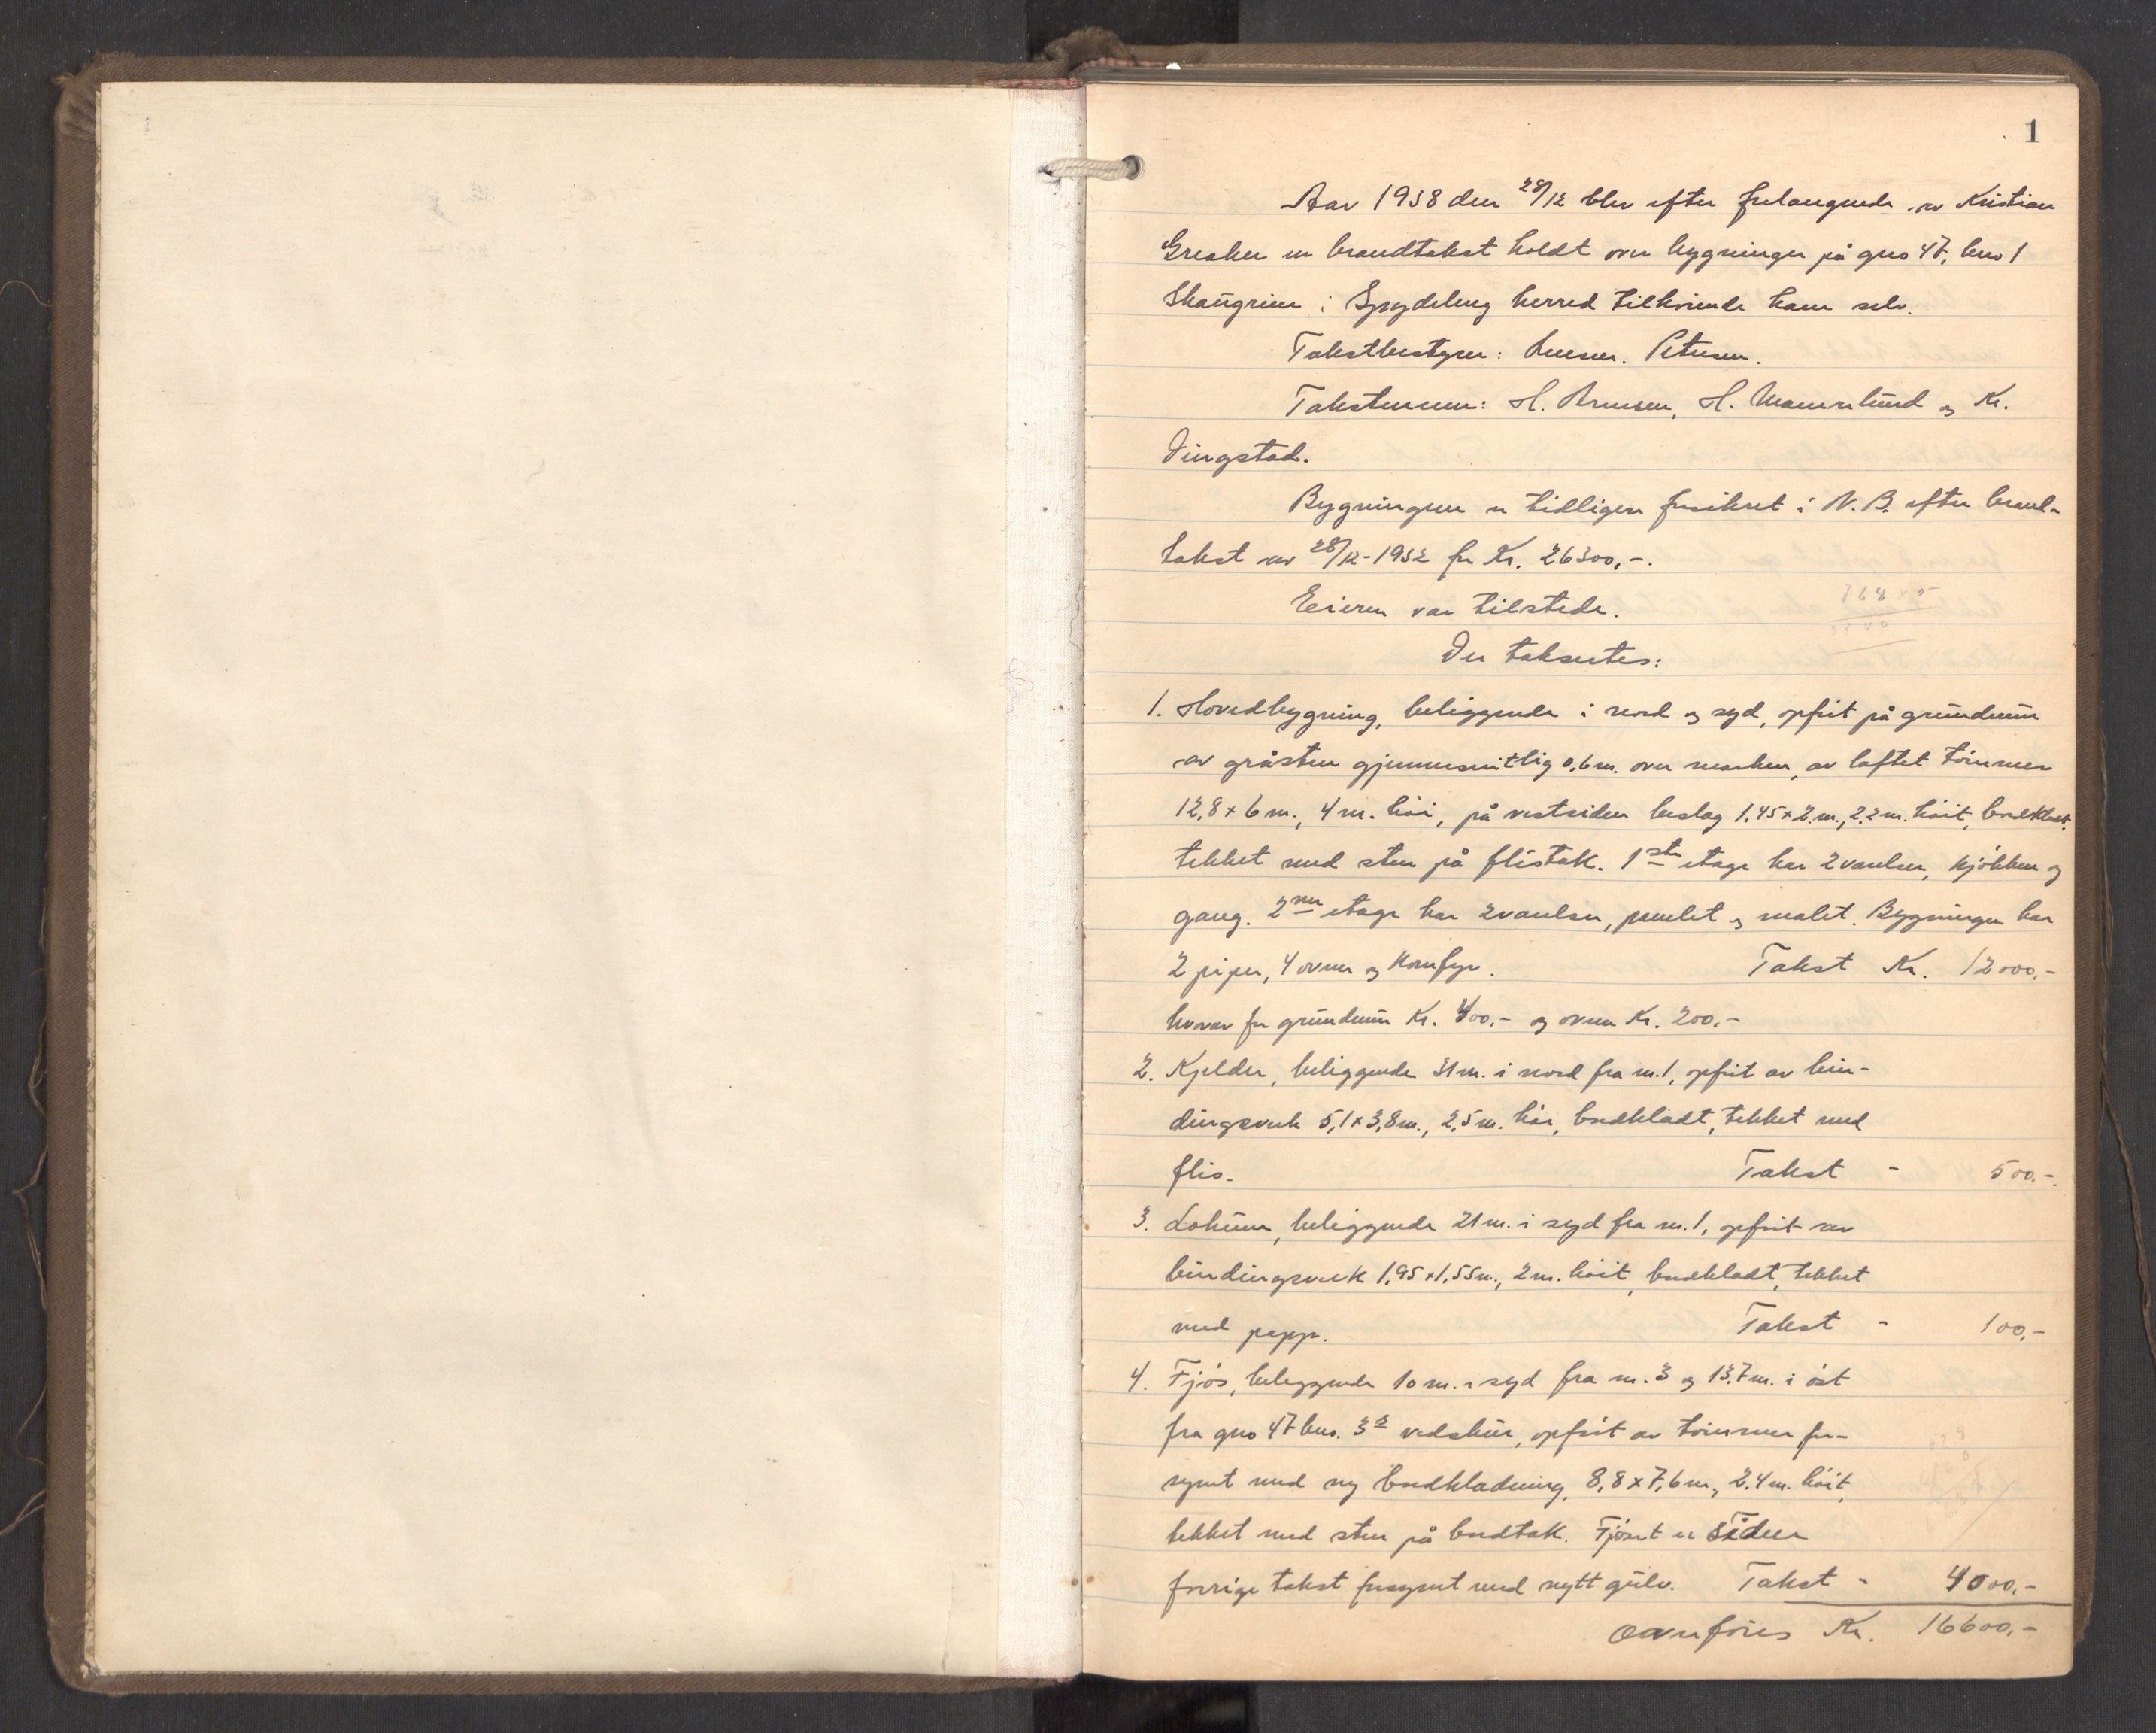 1
Aar 1938 den 28/12 blev efter forlangende av Kristian
Greaker en brandtakst holdt over bygninger på gno 47, bno 1
Skaugrim i Spydeberg herred tilhørende ham selv.
Takstbestyrer: Petersen.
Takstmenn: H. Arnesen, H. og Kr.
Dingstad.
Bygningene er tidligere forsikret i N.B. efter brand-
takst av 28/12-1932 for Kr. 26300,-.
768 x 5
Eieren var tilstede.
Der taksertes:
1. Hovedbygning, beliggende i nord og syd, opført på grundmur
av gråsten gjennemsnitlig 0,6 m. over marken, av laftet tømmer
12,8 x 6 m., 4 m. høi, på vestsiden beslag 1,45 x 2 m., 2,2 m. høit, bordkledt,
tekket med sten på flistak. 1ste etage har 2 værelser, kjøkken og
gang. 2nen etage har 2 værelser, panelet og malet. Bygningen har
2 piper, 4 ovner og komfyr. Takst Kr. 12000,-
hvorav for grundmur Kr. 400,- og ovner Kr. 200,-
2. Kjelder, beliggende 31 m. i nord fra m. 1, opført av bin-
dingsverk 5,1 x 3,8 m., 2,5 m. høi, bordklædt, tekket med
flis. Takst - 500,-.
3. Lokum, beliggende 21 m. i syd fra m. 1, opført av
bindingsverk 1,95 x 1,55 m., 2 m. høit, bordklædt, tekket
med papp. Takst - 100,-
4. Fjøs, beliggende 10 m. i syd fra m. 3 og 13,7 m. i øst
fra gno 47 bno. 3s vedskur, opført av tømmer for-
synt med ny bordklædning, 8,8 x 7,6 m., 2,4 m. høit,
tekket med sten på bordtak. Fjøset er siden
forrige takst forsynt med nytt gulv. Takst - 4000,-
Overføres Kr. 16600,-